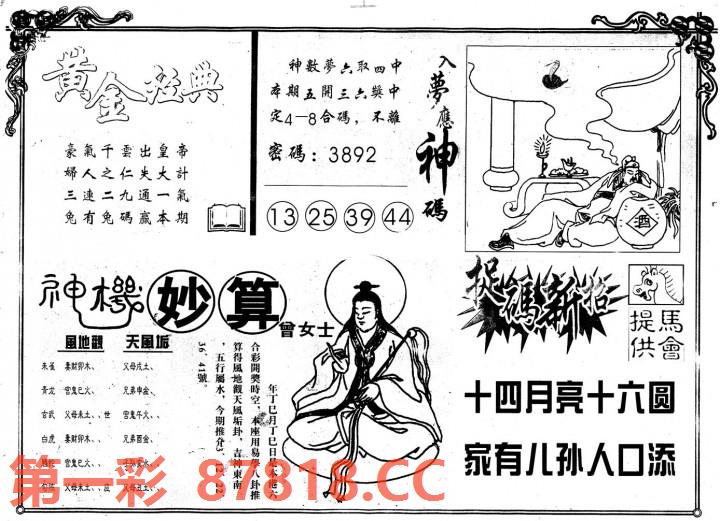 黃金經典
豪氣千雲出皇帝
婦人之仁失大計
三連二九通一氣
兔有兔碼贏本期
神數夢六取四中
本期五開三六獎中
定4-8合碼,不離
密碼:3892
13 25 39 44
入夢應神碼
酒
神機妙算
曾女士
風地觀 天風垢
朱雀 妻財卯木、 父母戌土、
青龙 官鬼巳火、 兄弟申金、
玄武 父母未土、、世 官鬼午火、
白虎 妻財卯木、、 兄弟酉金、
官鬼巳火、、
父母未土、、 父母丑土、、
年丁巳月丁巳日是本港六
合彩開獎時空,本座用易學八卦推
算得風地觀天風垢卦,吉神東南
,五行屬水,今期推介3,13,22
36,41號。
捉碼新招
馬會提供
十四月亮十六圆
家有儿孙人口添
第一彩 87818.CC